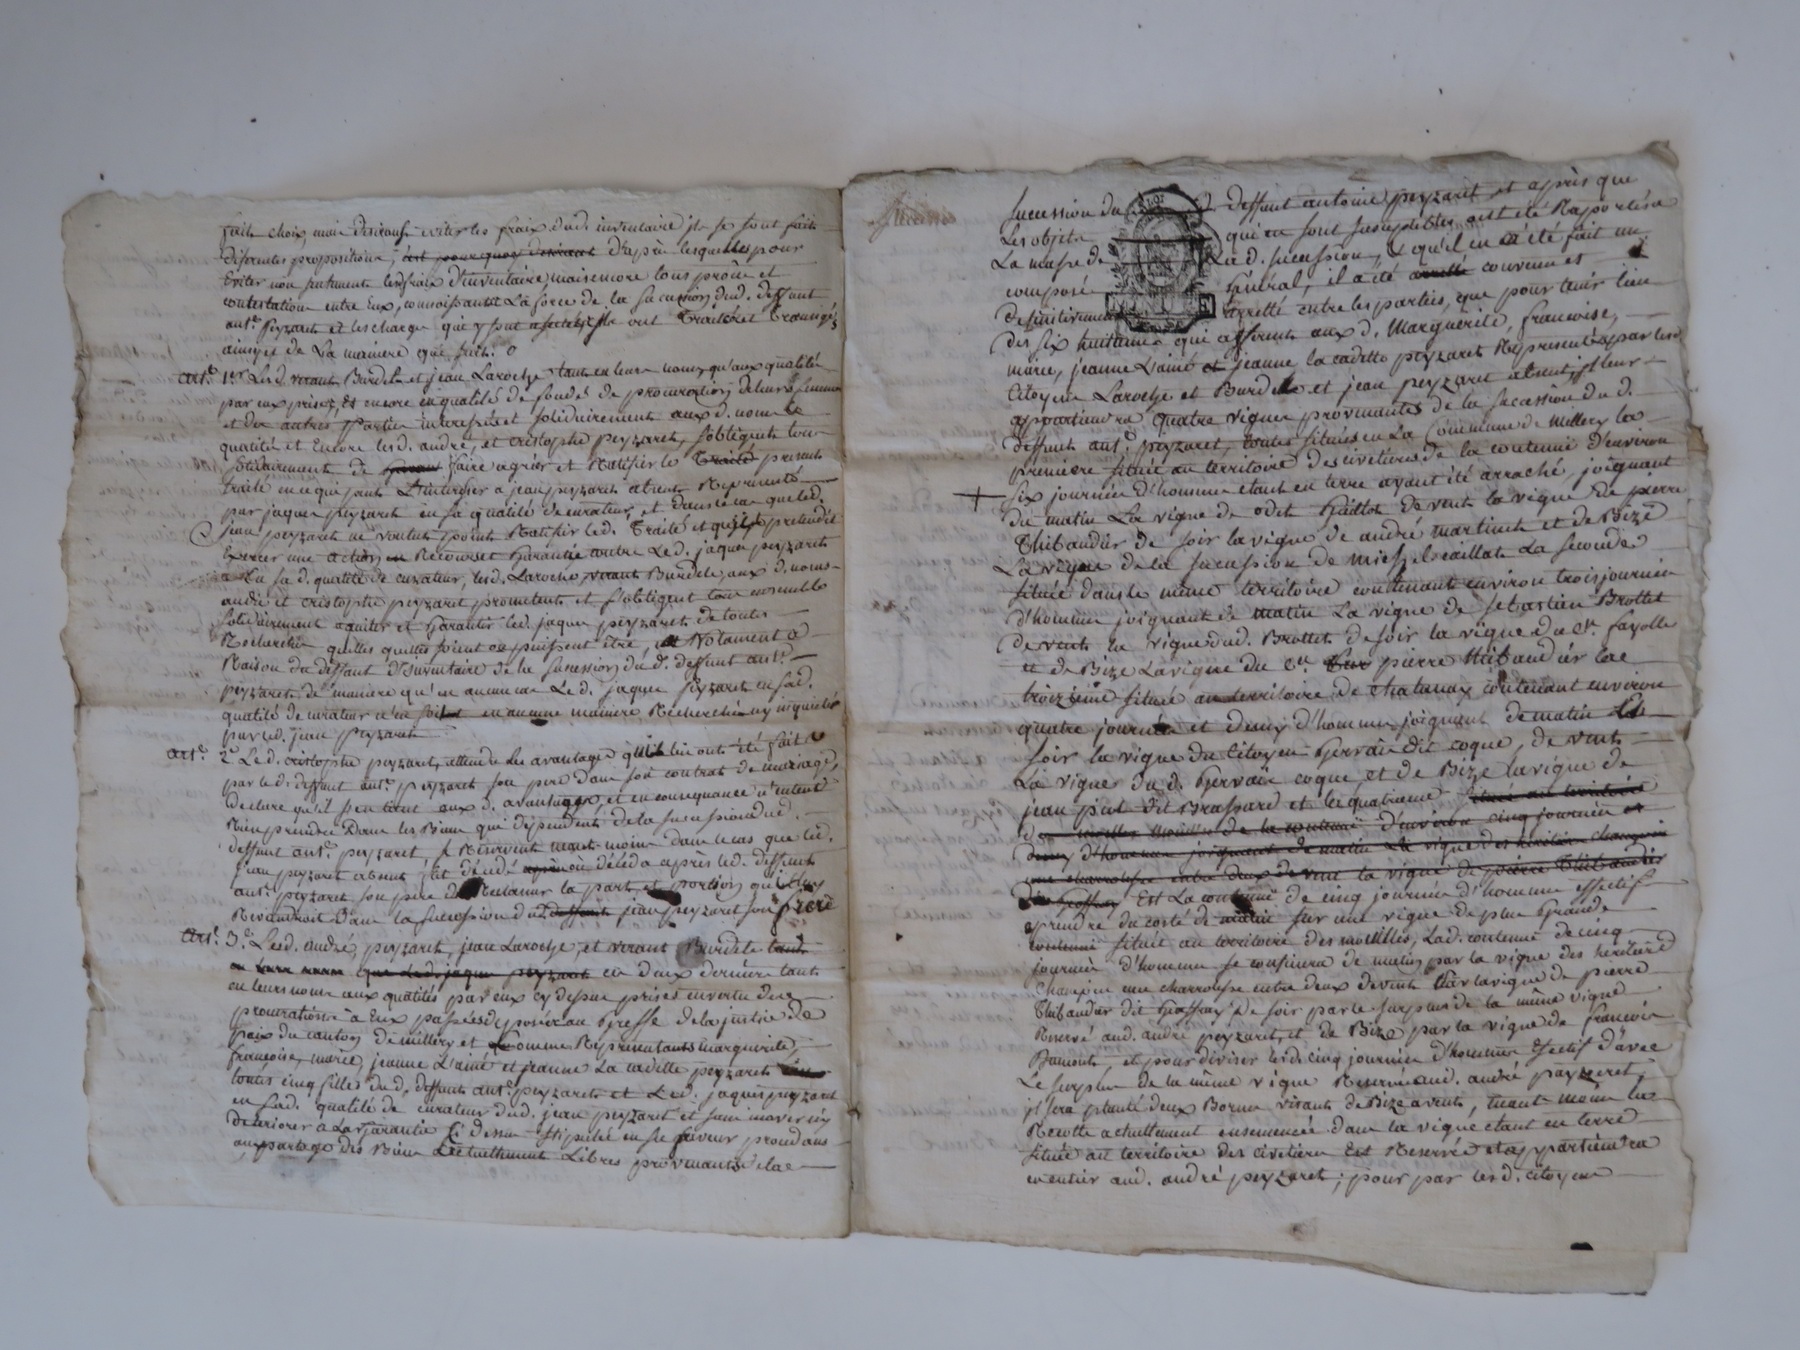 fait choix, mais désirant eviter les fraix dud. inventaire jls se sont faits
différentes propositions, c'est pourquoy d'apres lesquelles pour
Eviter non seulement lesd. fraix d'inventaire, mais encore tous procès et
contestations entre Eux, connoissants La force de la succession dud. deffunt
ant.e peyzaret et les charges qui y sont affectés jls ont Traités et Transigés
ainsy et de La maniere que suit.
art.e 1.er Lesd. verant Burdele et jean Laroche tant en leurs noms qu'aux qualités
par eux prises, et encore en qualités de fondés de procuration de leurs femmes
et des autres parties interessés et solidairement aux d. noms et
qualités et Encore lesd. andré, et cristophe peyzaret, s'obligent tous
solidairement de faire agréer et Ratifier le Traité present
traité en ce qui peut L'interesser a jean peyzaret absent Représenté
par jaques peyzaret en sa qualité de curateur, et dans le cas que led.
jean peyzaret ne voulut point Ratifier led. Traité et qu'il pretendit
Exercer une action en Recours et Garantie contre Led. jaques peyzaret
en sa d. qualité de curateur, lesd. Laroche, verant Burdele, aux d. noms
andré et cristophe peyzaret promettent et s'obligent tous ensemble
solidairement aquiter et Garantir led. jaques peyzaret de toutes
Recherches quelles quelles soient ou puissent être, et Notament a
Raison du deffaut d'Inventaire de la succession du d. deffunt ant.e
peyzaret de maniere qu'en aucun cas Le d. jaques peyzaret en sad.
qualité de curateur n'en soit en aucune maniere Recherché ny inquieté
par led. jean peyzaret
art.e 2.e Le d. cristophe peyzaret, attendu les avantages qui lui ont été fait
par le d. deffunt ant.e peyzaret son pere dans son contrat de mariage,
declare qu'il s'en tient aux d. avantages, et en consequence n'entend
Rien prendre Dans les Biens qui dépendent de la succession dud.
deffunt ant.e peyzaret, se Réservant neant moins dans le cas que led.
jean peyzaret absent fut décédé ou décéda après led. deffunt
ant.e peyzaret son pere de Reclamer la part et portion qui luy
Reviendroit Dans la succession dud. deffunt jean peyzaret son frere
art.e 3.e Lesd. andré, peyzaret, jean Laroche, et verant Burdele tant
en leurs noms que led. jaques peyzaret ces deux derniers tant
en leurs noms aux qualités par eux cy dessus prises en vertu des
procurations à Eux passées déposées au Greffe de la justice de
paix du canton de millery et comme Représentants marguerite,
françoise, marie, jeanne L'ainé et jeanne La cadette peyzaret
toutes cinq filles dud. deffunt ant.e peyzaret et Led. jaques peyzaret
en sad. qualité de curateur dud. jean peyzaret et sans inover ny
deteriorer à La Garantie Ci dessus stipulée en sa faveur procedans
au partage des Biens actuellement Libres provenants de la
succession du d. deffunt antoine peyzaret et après que
Les objets qui en sont susceptibles ont été Rapportés a
La masse de La d. succession, et qu'il en a été fait un
composé Général, il a été arretté convenu et
definitivement arretté entre les parties, que pour tenir lieu
des six huitiemes qui afferent aux d. Marguerite, francoise,
marie, jeanne L'ainé et jeanne la cadette peyzaret Représentés par les
Citoyens Laroche et Burdele et jean peyzaret absent, jl leur
appartiendra quatre vignes provenantes de la succession du d.
deffunt ant.e peyzaret, toutes situées en La Commune de Millery la
premiere située au territoire des civetieres de la contenue d'environ
six journées d'hommes etant en terre ayant été arraché, joignant
du matin La vigne de odet Guillot de vent la vigne de pierre
Thibaudier de soir la vigne de andré martinet et de Bize
La vigne de la succession de michel caillat La seconde
située dans le même territoire contenant environ trois journées
d'hommes joignant de matin La vigne de sebastien Brottet
de vent la vigne dud. Brottet de soir la vigne du c.n fayolle
et de Bize La vigne du c.n pierre thibaudier la
troizieme située au territoire de chatanay contenant environ
quatre journées et demy d'hommes joignent de matin et
soir la vigne du Citoyen Gervais dit coque, de vent
La vigne du d. Gervais coque, et de Bize la vigne de
jean paul dit Brassard et la quatrieme située au territoire
des moetilles de la contenue d'environ cinq journées et
demy d'hommes joignant de matin la vigne des héritiers champin
une charroirse entre deux de vent la vigne de pierre Thibaudier
dit Goffray Est La contenue de cinq journées d'hommes effectif
a prendre du costé de matin sur une vigne de plus Grande
contenue située au territoire des moetilles, La d. contenue de cinq
journées d'hommes se confinera de matin par la vigne des heritiers
champin une charroirse entre deux de vent par la vigne de pierre
Thibaudier dit Goffray de soir par le surplus de la même vigne
Reservé aud. andré peyzaret, et de Bize par la vigne de francois
Bamont, et pour diviser lesd. cinq journées d'hommes Effectif d'avec
Le surplus de la même vigne Reservée aud. andré payzeret,
jl sera planté deux Bornes visants de Bize a vent, neant moins la
Recolte actuellement ensemencée dans la vigne etant en terre
située au territoire des civetieres Est Reservé et appartiendra
en entier aud. andré peyzaret; pour par lesd. citoyens